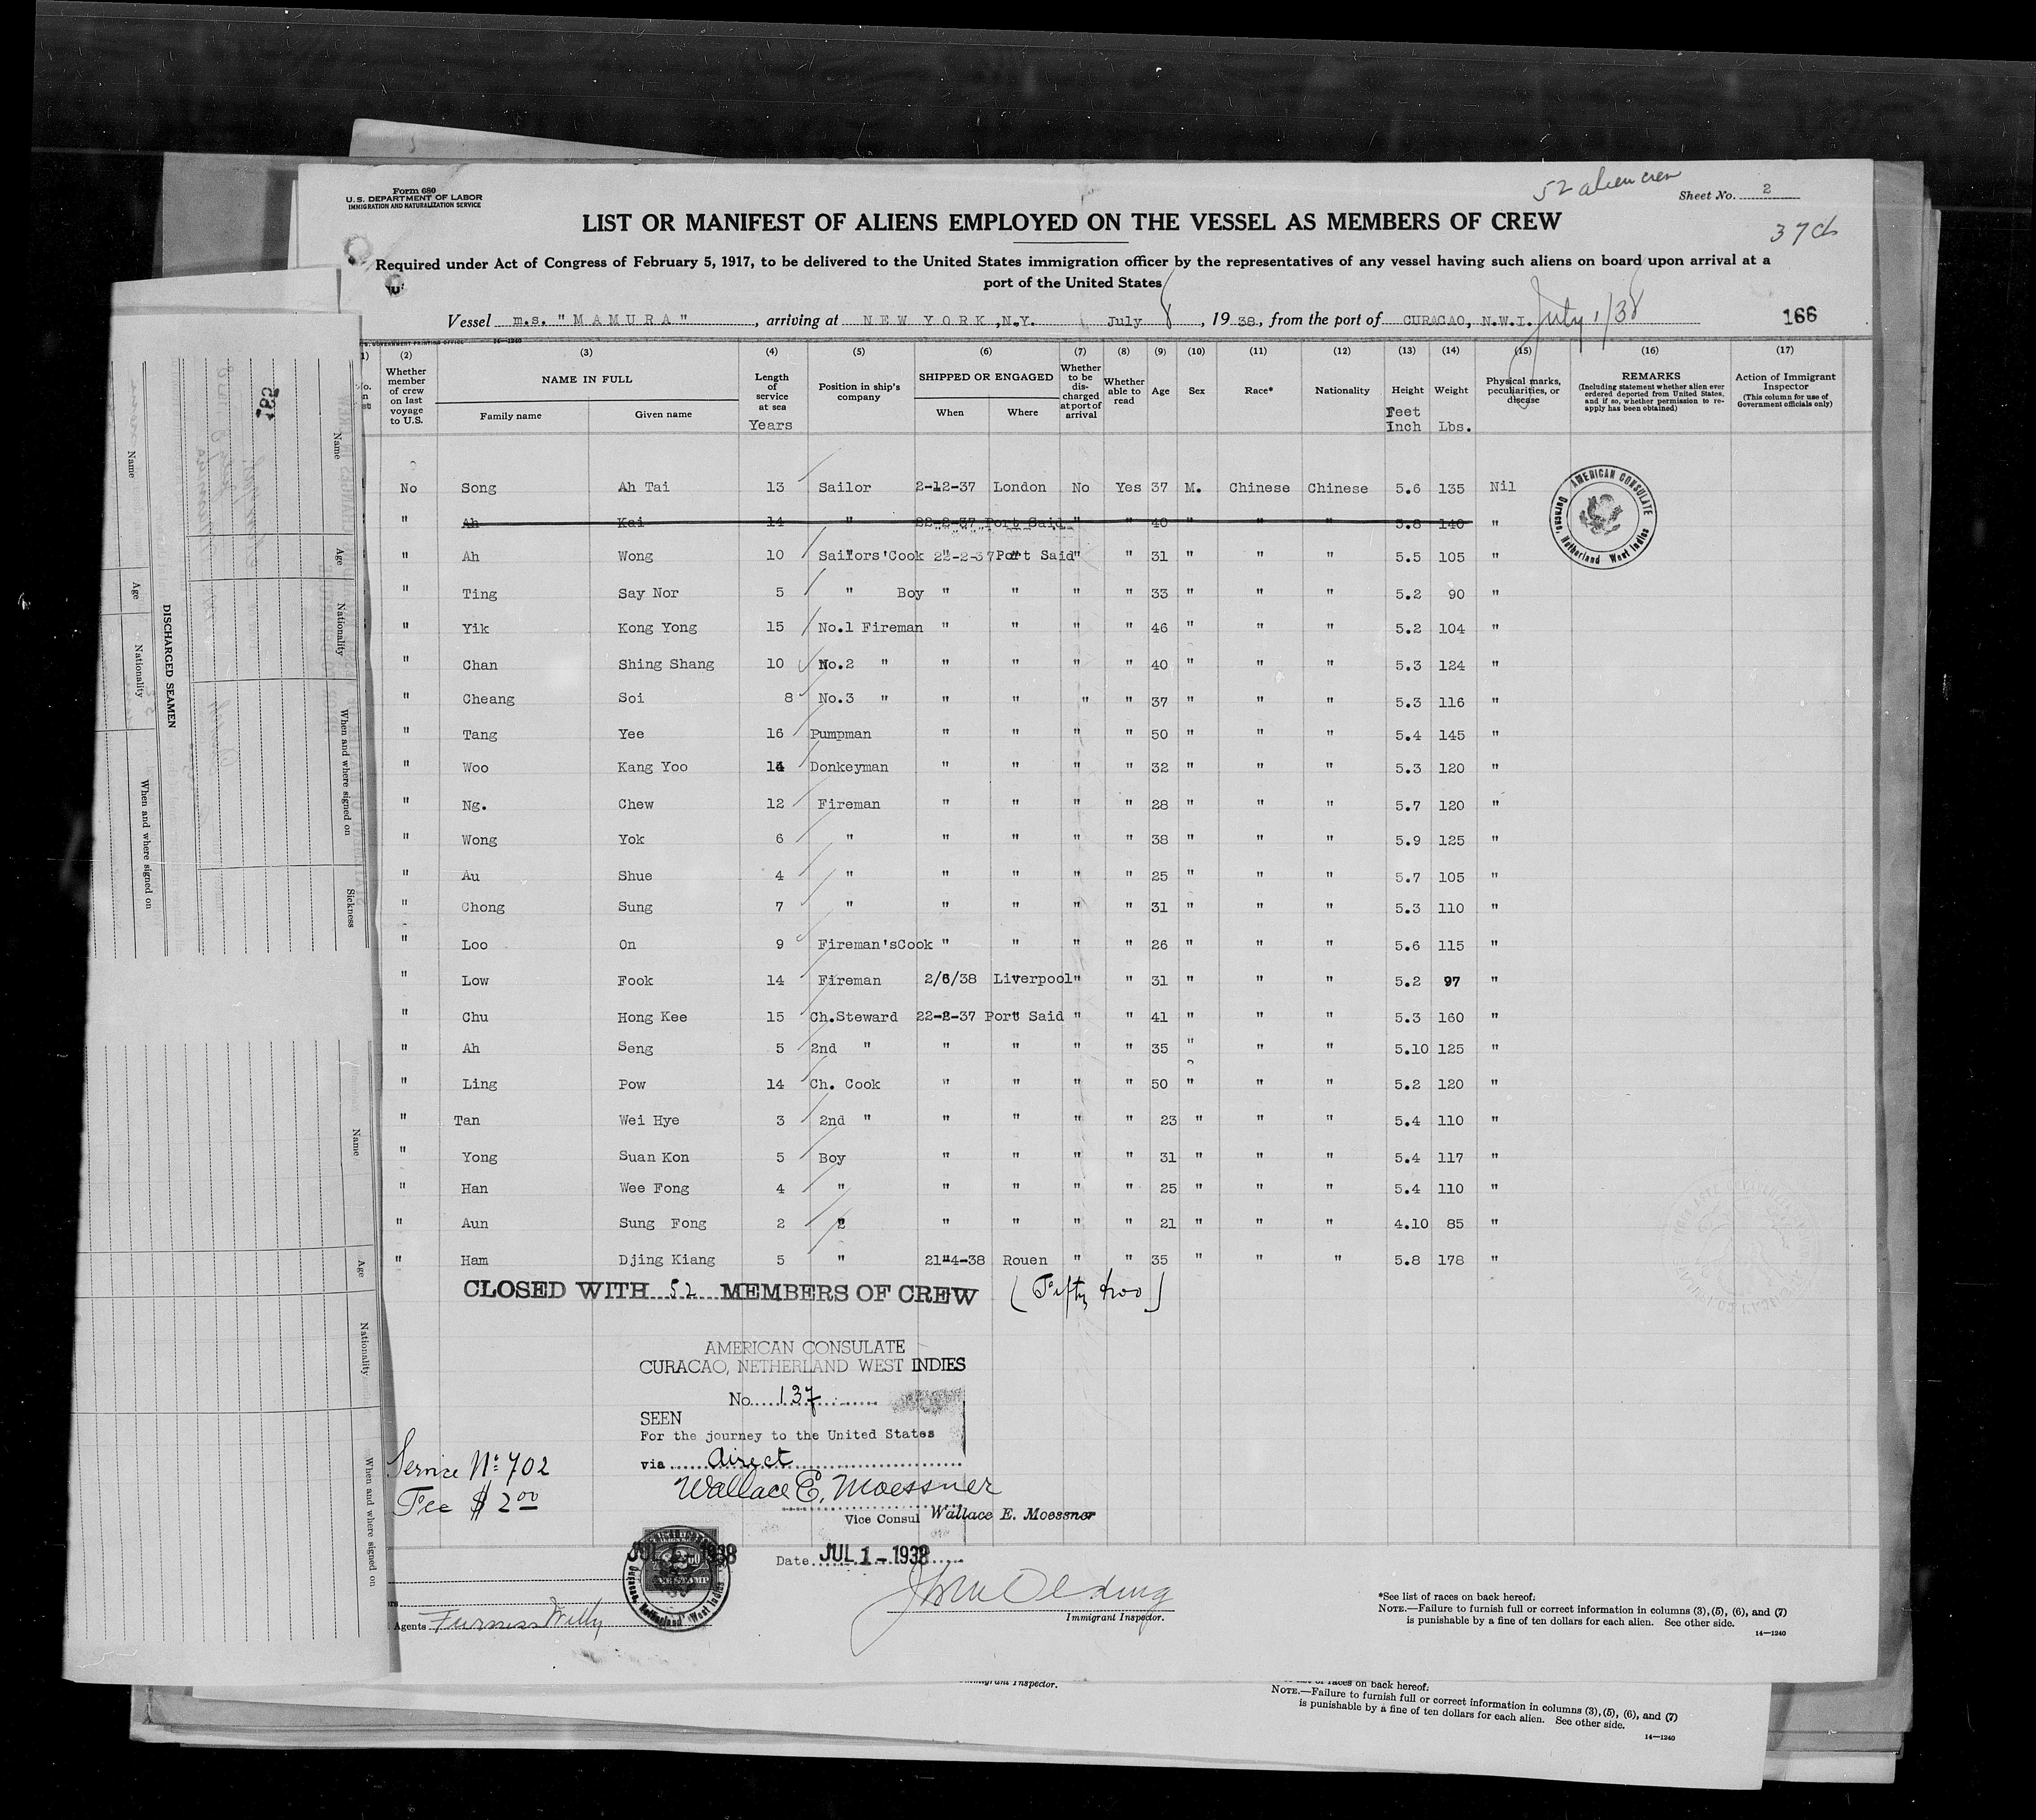 52 alien crew
Form 680
U.S. DEPARTMENT OF LABOR
IMMIGRATION AND NATURALIZATION SERVICE
Sheet No. 2
LIST OR MANIFEST OF ALIENS EMPLOYED ON THE VESSEL AS MEMBERS OF CREW
37 ch
Required under Act of Congress of February 5, 1917, to be delivered to the United States immigration officer by the representatives of any vessel having such aliens on board upon arrival at a
port of the United States
Vessel m.s. "MAMURA", arriving at NEW YORK, N.Y. July 8, 1938, from the port of CURACAO, N.W.I. July 1/38
166
(2) (3) (4) (5) (6) (7) (8) (9) (10) (11) (12) (13) (14) (15) (16) (17)
Whether member of crew on last voyage to U.S.
NAME IN FULL
Family name
Given name
Length of service at sea
Years
Position in ship's company
SHIPPED OR ENGAGED
When
Where
Whether to be discharged at port of arrival
Whether able to read
Age
Sex
Race*
Nationality
Height
Feet Inch
Weight
Lbs.
Physical marks, peculiarities, or disease
REMARKS
(Including statement whether alien ever ordered deported from United States, and if so, whether permission to re-apply has been obtained)
Action of Immigrant Inspector
(This column for use of Government officials only)
No Song Ah Tai 13 Sailor 2-12-37 London No Yes 37 M. Chinese Chinese 5.6 135 Nil
" Ah Kai 14 " 22-2-37 Port Said " " 40 " " " 5.8 140 "
" Ah Wong 10 Sailors'Cook 22-2-37 Port Said " " 31 " " " 5.5 105 "
" Ting Say Nor 5 " Boy " " " " 33 " " " 5.2 90 "
" Yik Kong Yong 15 No.1 Fireman " " " " 46 " " " 5.2 104 "
" Chan Shing Shang 10 No.2 " " " " " 40 " " " 5.3 124 "
" Cheang Soi 8 No.3 " " " " " 37 " " " 5.3 116 "
" Tang Yee 16 Pumpman " " " " 50 " " " 5.4 145 "
" Woo Kang Yoo 14 Donkeyman " " " " 32 " " " 5.3 120 "
" Ng. Chew 12 Fireman " " " " 28 " " " 5.7 120 "
" Wong Yok 6 " " " " " 38 " " " 5.9 125 "
" Au Shue 4 " " " " " 25 " " " 5.7 105 "
" Chong Sung 7 " " " " " 31 " " " 5.3 110 "
" Loo On 9 Fireman'sCook " " " " 26 " " " 5.6 115 "
" Low Fook 14 Fireman 2/6/38 Liverpool " " 31 " " " 5.2 97 "
" Chu Hong Kee 15 Ch.Steward 22-2-37 Port Said " " 41 " " " 5.3 160 "
" Ah Seng 5 2nd " " " " " 35 " " " 5.10 125 "
" Ling Pow 14 Ch. Cook " " " " 50 " " " 5.2 120 "
" Tan Wei Hye 3 2nd " " " " " 23 " " " 5.4 110 "
" Yong Suan Kon 5 Boy " " " " 31 " " " 5.4 117 "
" Han Wee Fong 4 " " " " " 25 " " " 5.4 110 "
" Aun Sung Fong 2 " " " " " 21 " " " 4.10 85 "
" Ham Djing Kiang 5 " 21-4-38 Rouen " " 35 " " " 5.8 178 "
AMERICAN CONSULATE
Curacao, Netherland West Indies
CLOSED WITH 52 MEMBERS OF CREW (Fifty two)
AMERICAN CONSULATE
CURACAO, NETHERLAND WEST INDIES
No. 137
SEEN
For the journey to the United States
via direct
Wallace E. Moessner
Vice Consul Wallace E. Moessner
Service No. 702
Fee $ 2 00
JUL 1 - 1938
Curacao, Netherland West Indies
Date JUL 1 - 1938
Agents Furness Withy
Immigrant Inspector.
*See list of races on back hereof.
NOTE.—Failure to furnish full or correct information in columns (3), (5), (6), and (7)
is punishable by a fine of ten dollars for each alien. See other side.
14—1240
Immigrant Inspector.
races on back hereof.
NOTE.—Failure to furnish full or correct information in columns (3), (5), (6), and (7)
is punishable by a fine of ten dollars for each alien. See other side.
14—1240
Name
Age
Nationality
When and where signed on
DISCHARGED SEAMEN
Name
Age
Nationality
When and where signed on
Sickness
Name
Age
Nationality
When and where signed on